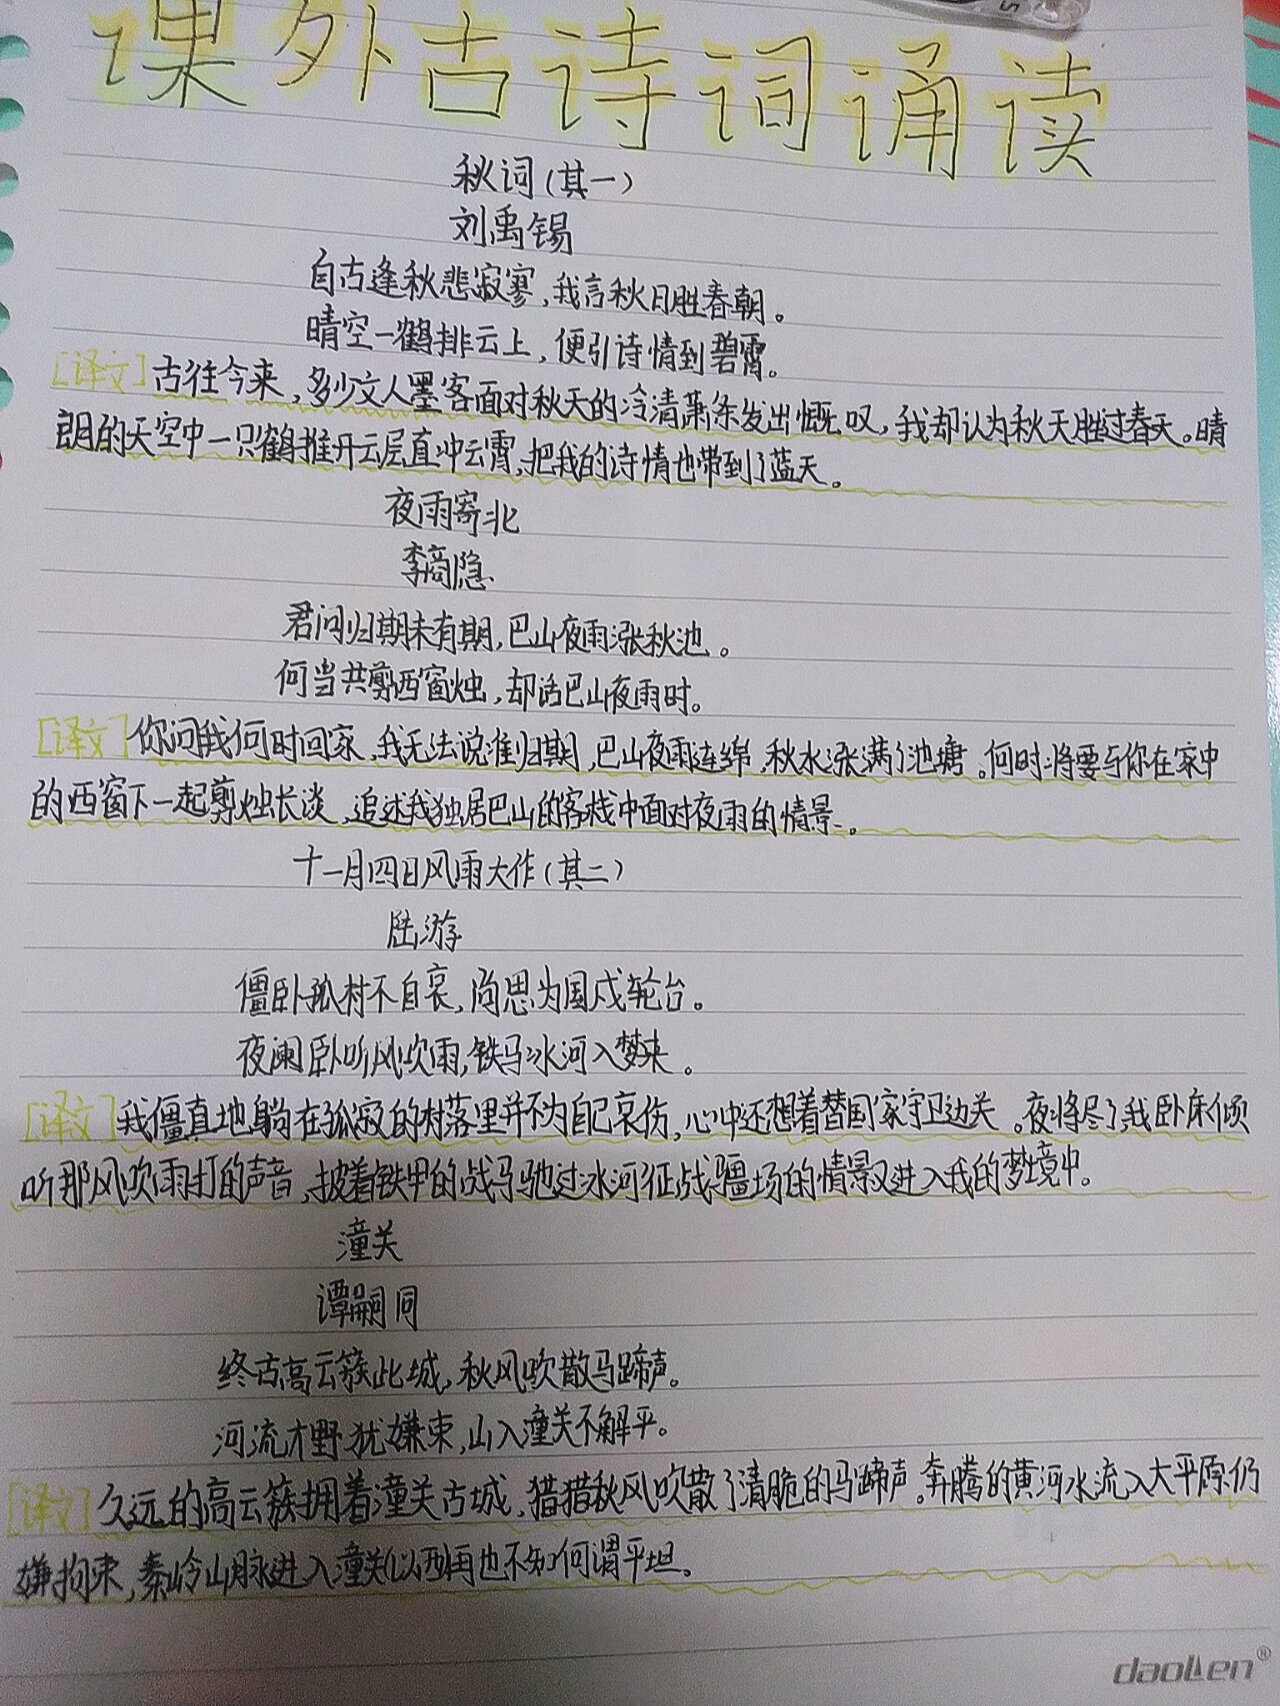 课外古诗词诵读
秋词(其一)
刘禹锡
自古逢秋悲寂寥,我言秋日胜春朝。
晴空一鹤排云上,便引诗情到碧霄。
[译文]古往今来,多少文人墨客面对秋天的冷清萧条发出慨叹,我却认为秋天胜过春天。晴
朗的天空中一只鹤推开云层直冲云霄,把我的诗情也带到了蓝天。
夜雨寄北
李商隐
君问归期未有期,巴山夜雨涨秋池。
何当共剪西窗烛,却话巴山夜雨时。
[译文]你问我何时回家,我无法说准归期,巴山夜雨连绵,秋水涨满了池塘。何时将要与你在家中
的西窗下一起剪烛长谈,追述我独居巴山的客栈中面对夜雨的情景。
十一月四日风雨大作(其二)
陆游
僵卧孤村不自哀,尚思为国戍轮台。
夜阑卧听风吹雨,铁马冰河入梦来。
[译文]我僵直地躺在孤寂的村落里并不为自己哀伤,心中还想着替国家守卫边关。夜将尽了,我卧床倾
听那风吹雨打的声音,披着铁甲的战马驰过冰河征战疆场的情景又进入我的梦境中。
潼关
谭嗣同
终古高云簇此城,秋风吹散马蹄声。
河流大野犹嫌束,山入潼关不解平。
[译文]久远的高云簇拥着潼关古城,猎猎秋风吹散了清脆的马蹄声。奔腾的黄河水流入大平原仍
嫌拘束,秦岭山脉进入潼关以西再也不知何谓平坦。
daolen®